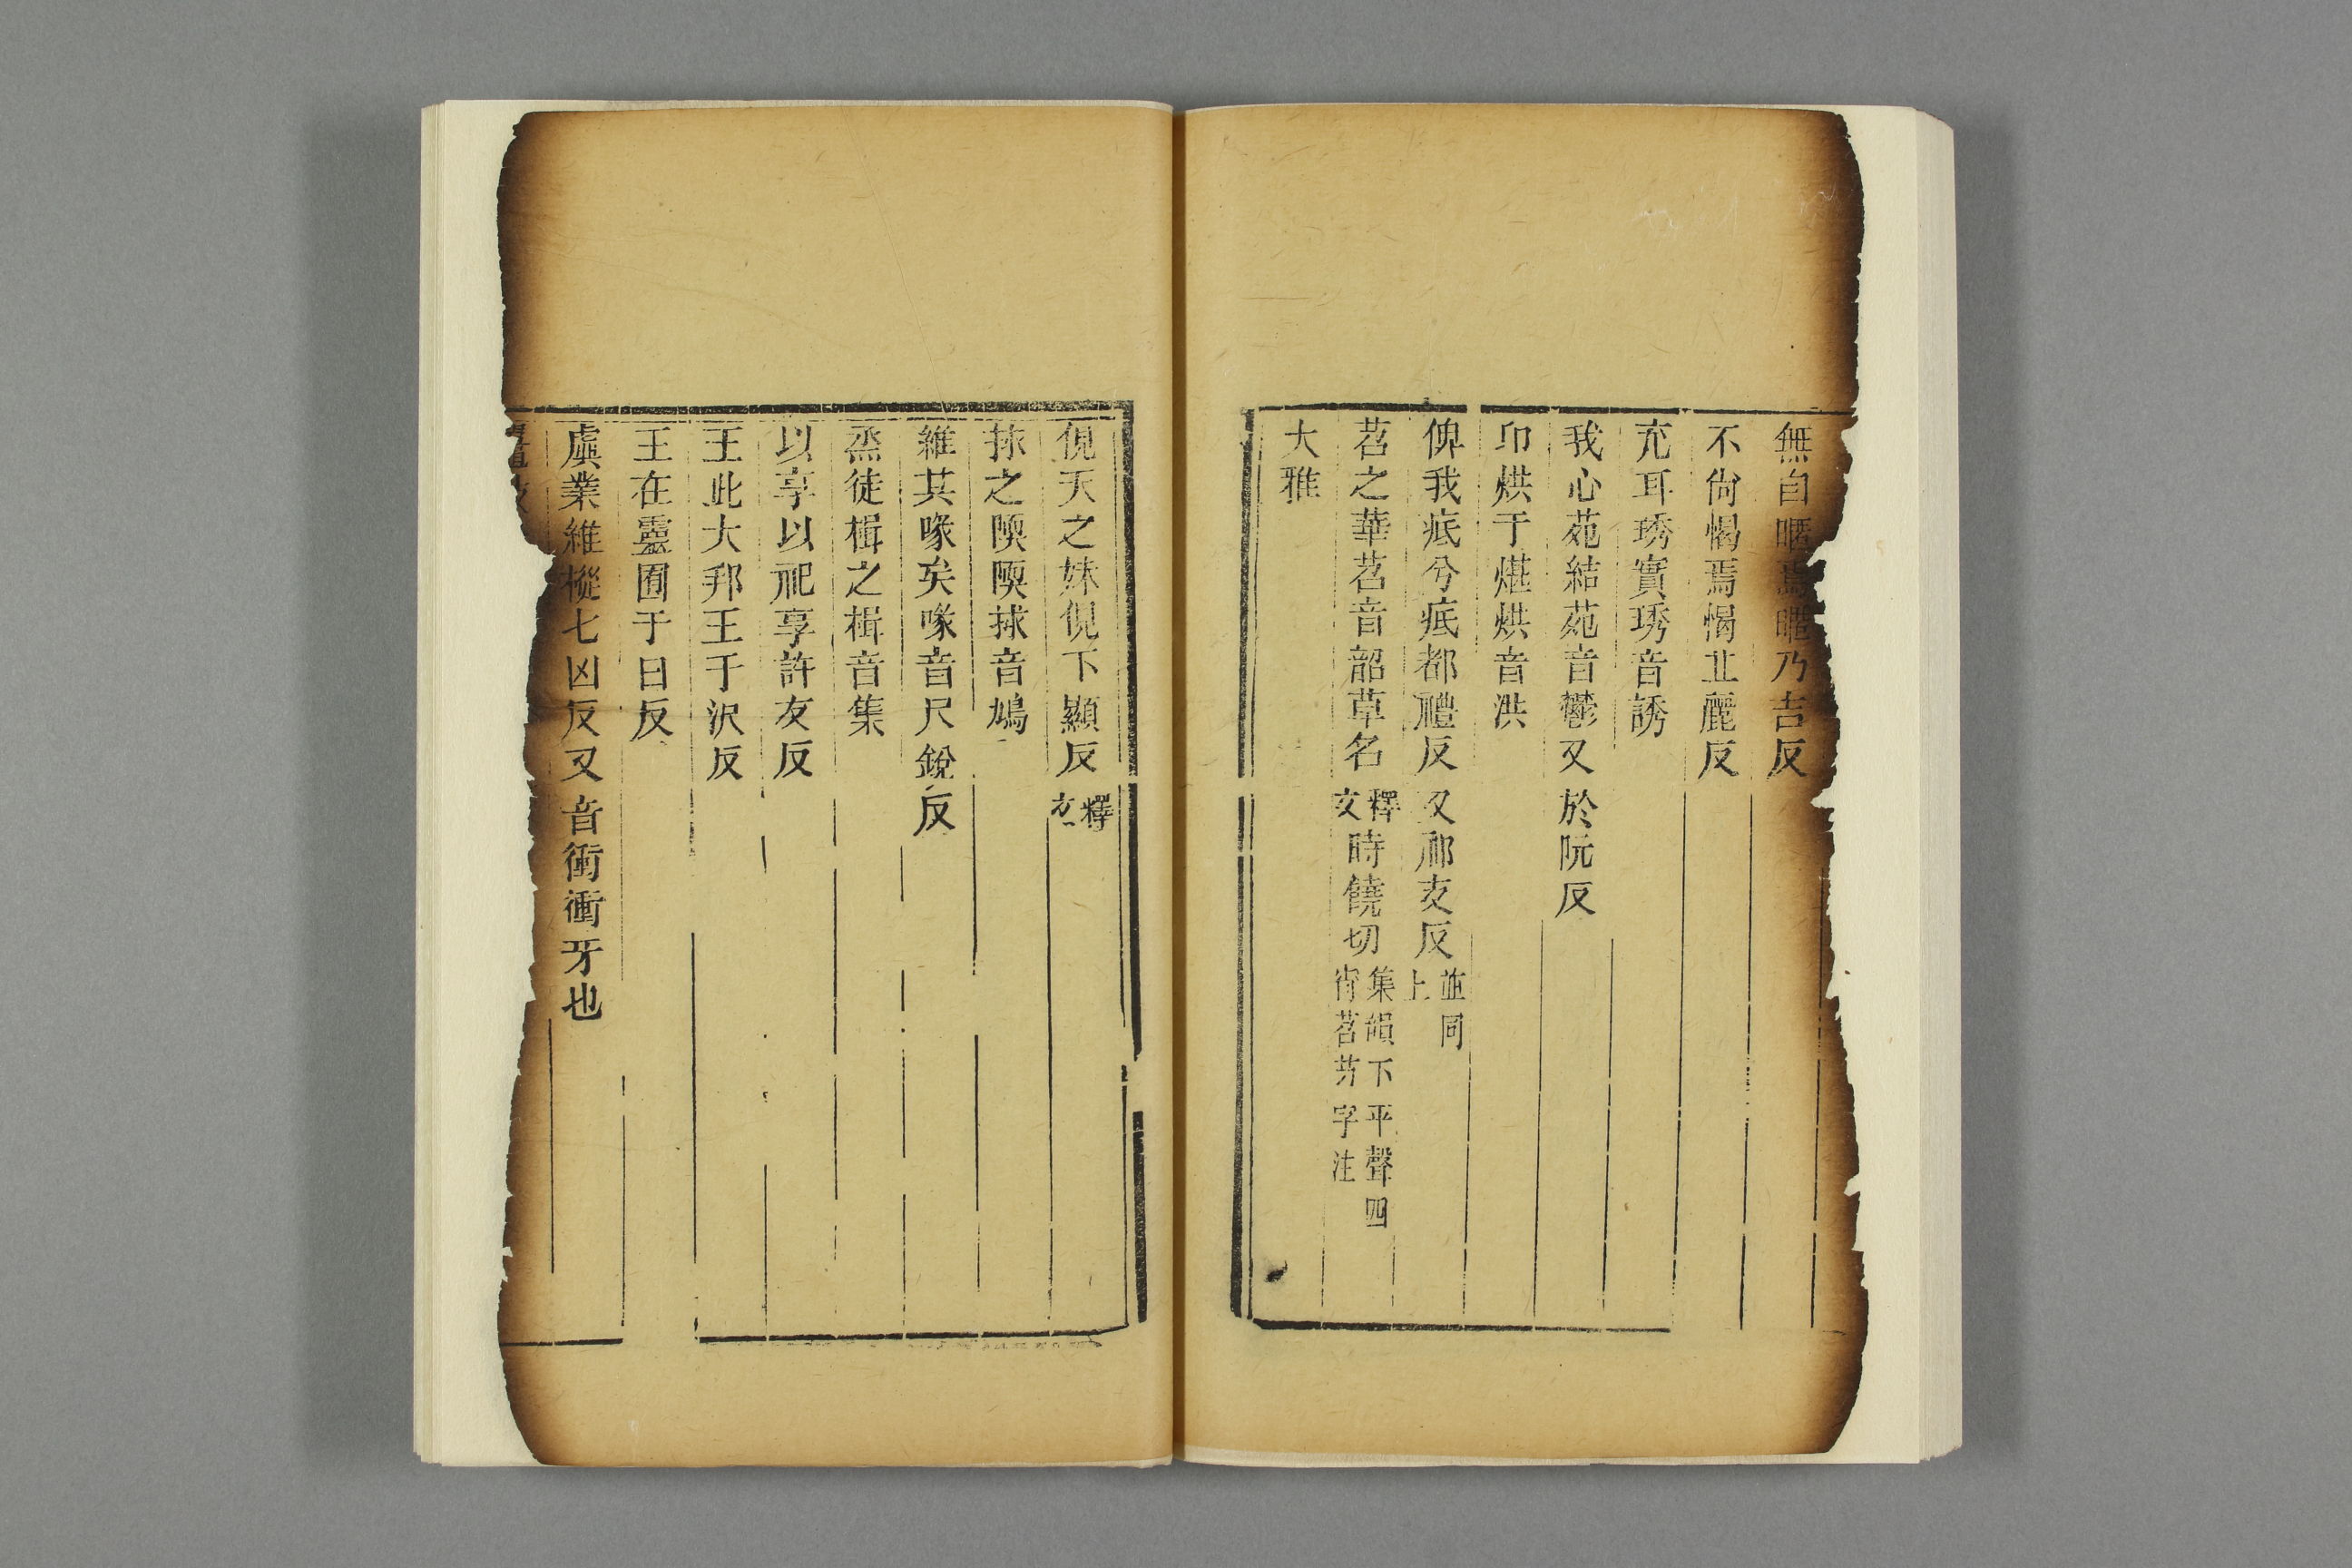 無自暱焉暱乃吉反
不尙愒焉愒丘麗反
充耳琇實琇音誘
我心苑結苑音鬱又於阮反
卬烘于煁烘音洪
俾我疷兮疷都禮反又祁支反並同上
苕之華苕音韶草名釋文時饒切集韻下平聲四宵苕艼字注
大雅
俔天之妹俔下顯反釋文
捄之陾陾捄音鳩
維其喙矣喙音尺銳反
烝徒楫之楫音集
以享以祀享許友反
王此大邦王于況反
王在靈囿于日反
虡業維樅七凶反又音衝衝牙也